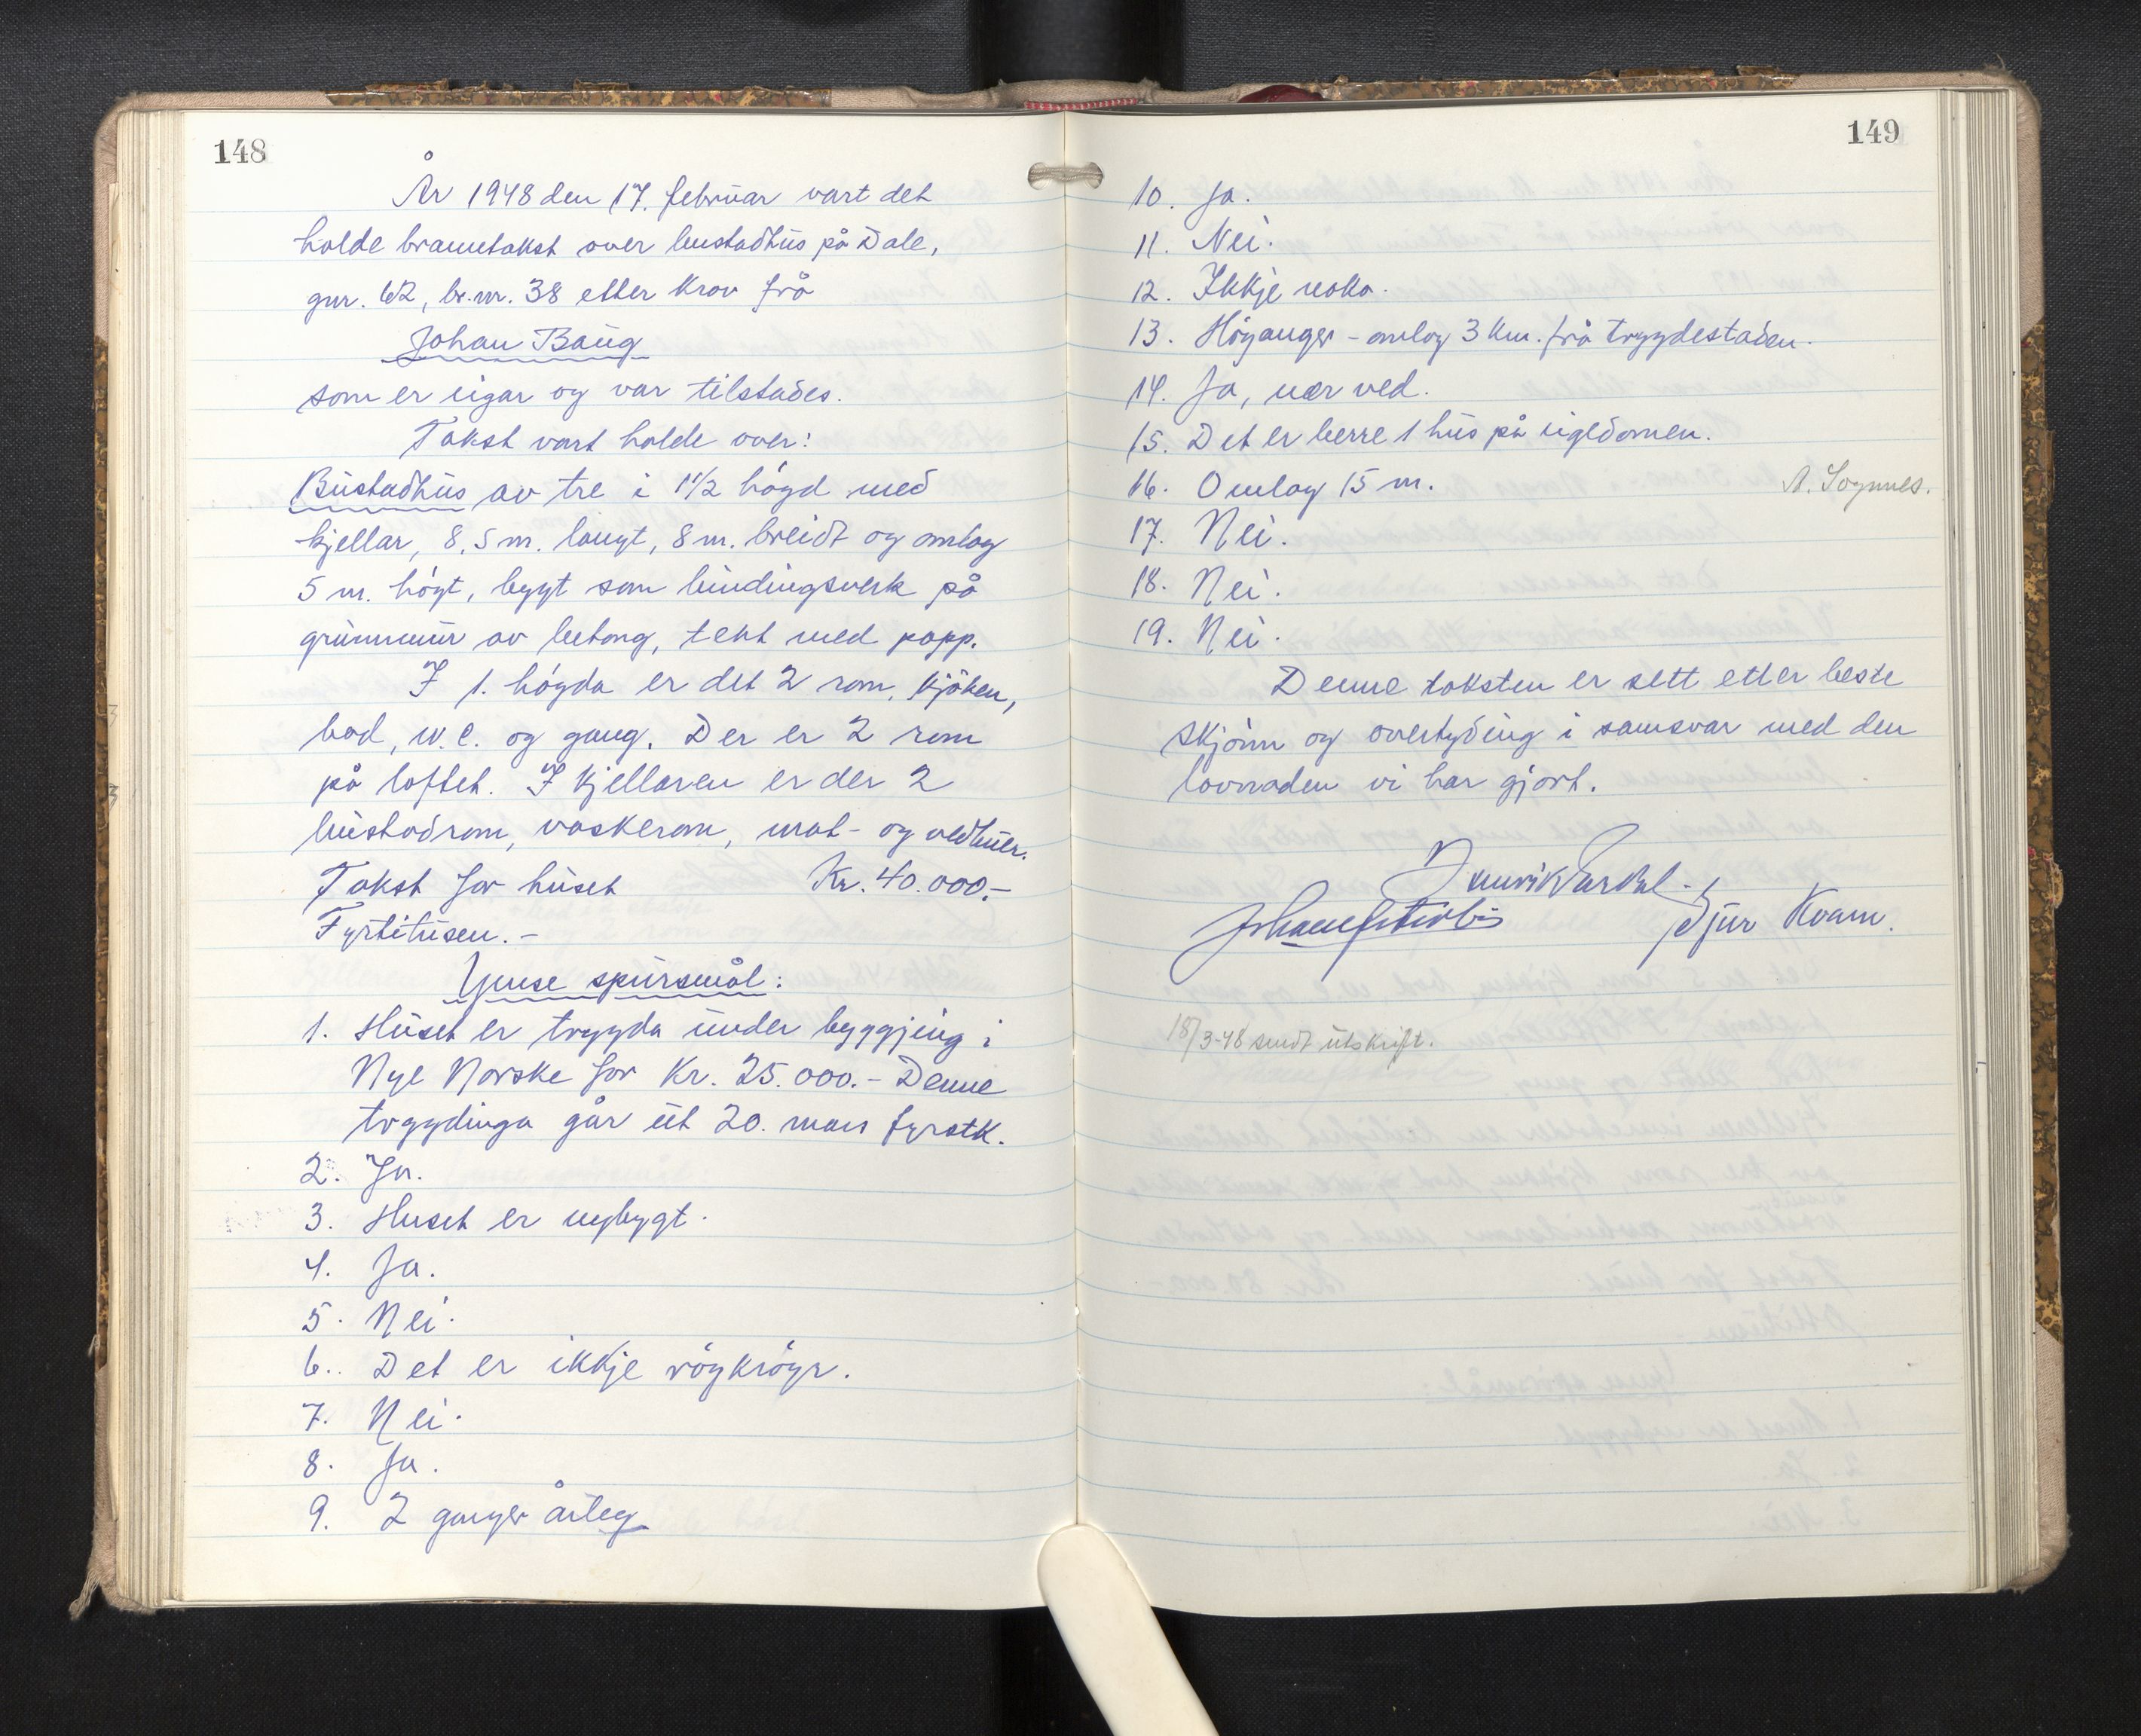 148
År 1948 den 17. februar vart det
halde branntakst over bustadhus på Dale,
gnr. 62, br.nr. 38 etter krav frå
Johan Baug
som er eigar og var tilstades.
Takst vart halde over:
Bustadhus av tre i 1 1/2 högd med
kjellar, 8,5 m. langt, 8 m. breidt og omlag
5 m. högt, bygt som bindingsverk på
grunnmur av betong, tekt med papp.
I 1. högda er det 2 rom, kjöken,
bad, w.c. og gang. Der er 2 rom
på loftet. I kjellaren er der 2
bustadrom, vaskerom, mat- og vedbuer.
Takst for huset Kr. 40.000.-
Fyrtitusen.-
Ymse spursmål:
1. Huset er trygda under byggjing i
Nye Norske for Kr. 25.000.- Denne
trygdinga går ut 20. mars fyrstk.
2. Ja.
3. Huset er nybygt.
4. Ja.
5. Nei.
6. Det er ikkje röykröyr.
7. Nei.
8. Ja.
9. 2 ganger årleg
149
10. Ja.
11. Nei.
12. Ikkje noko.
13. Höyanger - omlag 3 km. frå trygdestaden.
14. Ja, nær ved.
15. Det er berre 1 hus på eigedomen.
16. Omlag 15 m. A. Sognnes.
17. Nei.
18. Nei.
19. Nei.
Denne taksten er sett etter beste
skjönn og overtyding i samsvar med den
lovnaden vi har gjort.
Sjur Kvam.
18/3-48 sendt utskrift.